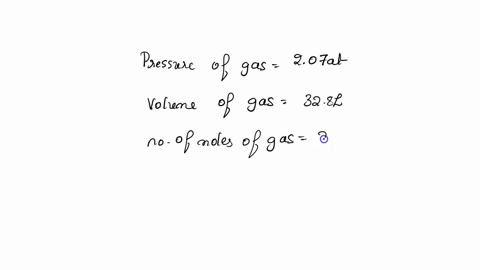 Pressure of gas = 2.07at
Volume of gas = 32.8L
no. of moles of gas =